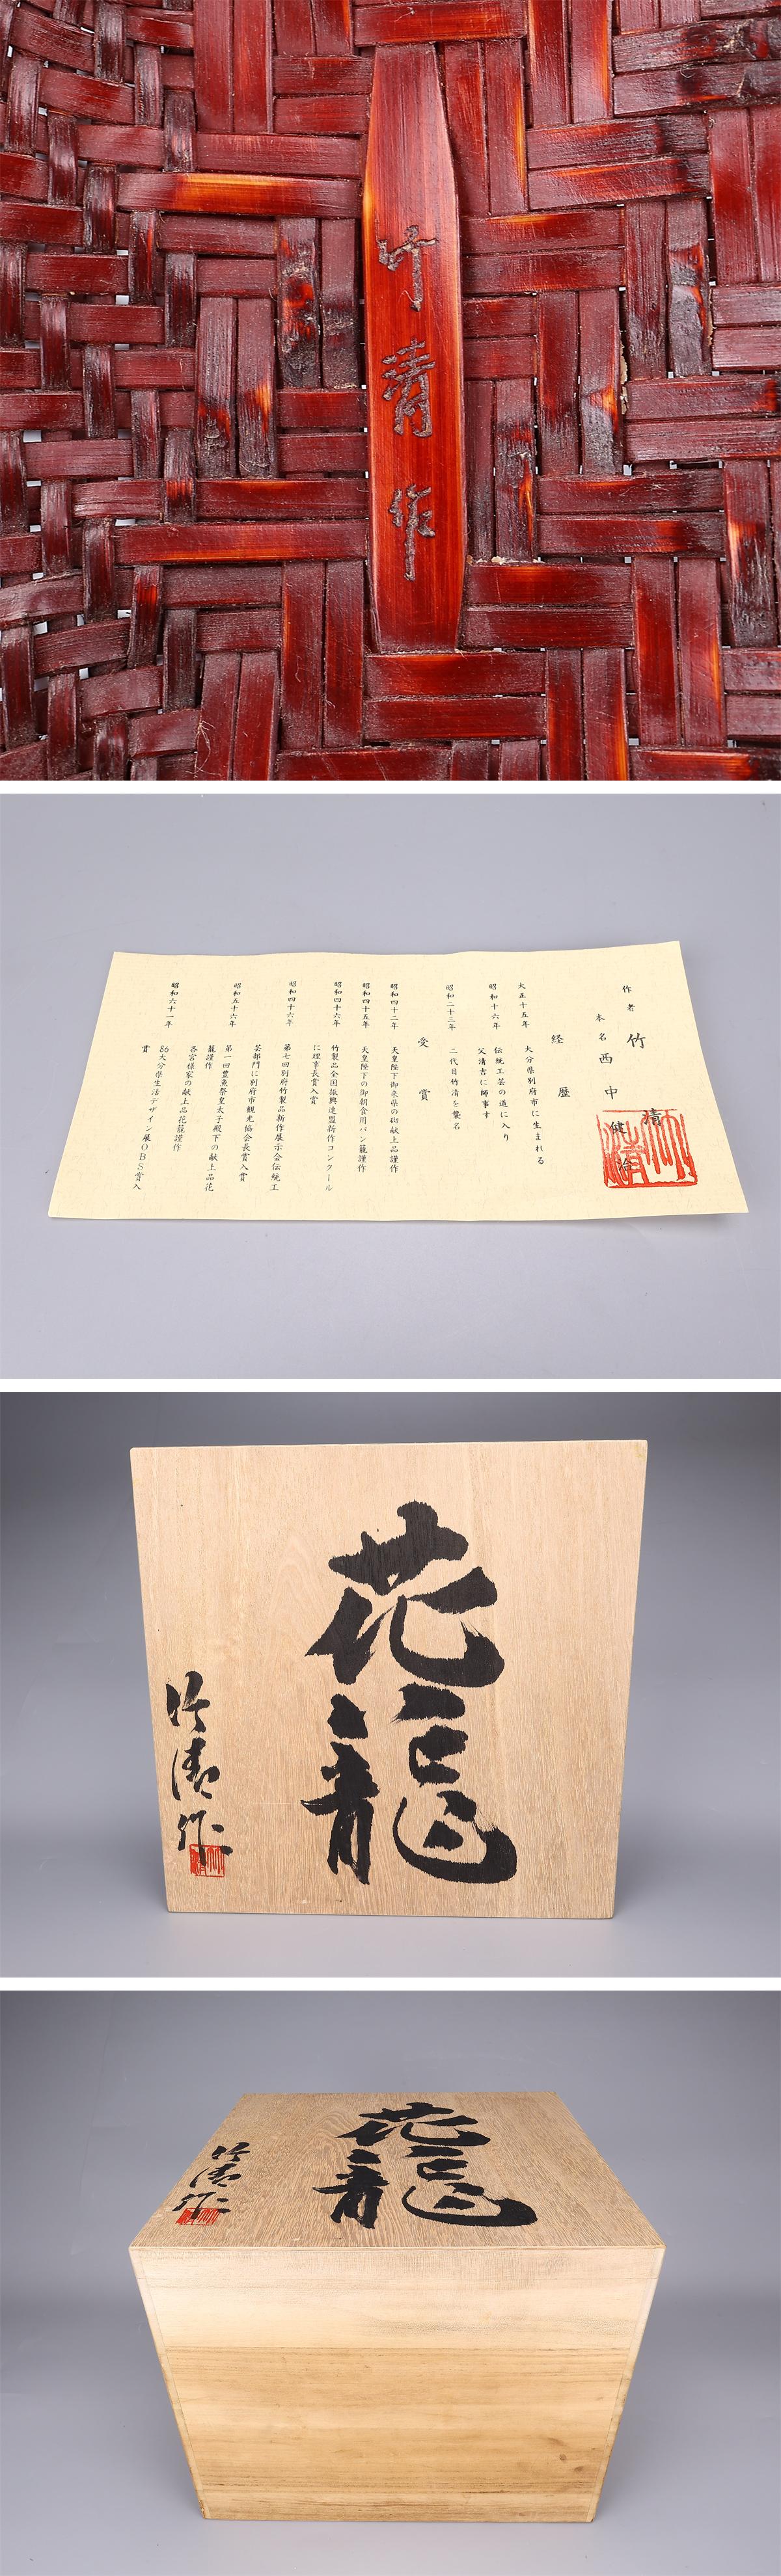 竹清作
作者 竹清
本名 西中健治
経歴
大正十五年 大分県別府市に生まれる
昭和十六年 伝統工芸の道に入り
父清吉に師事す
昭和二十三年 二代目竹清を襲名
受賞
昭和四十二年 天皇陛下御来県の御献上品謹作
昭和四十五年 天皇陛下の御朝食用パン籠謹作
昭和四十六年 竹製品全国振興連盟新作コンクール
に理事長賞入賞
昭和四十六年 第七回別府竹製品新作展示会伝統工
芸部門に別府市観光協会長賞入賞
昭和五十六年 第一回豊魚祭皇太子殿下の献上品花
籠謹作
各宮様家の献上品花籠謹作
昭和六十一年 86大分県生活デザイン展OBS賞入
賞
竹清
花籠
竹清作
竹清
花籠
竹清作